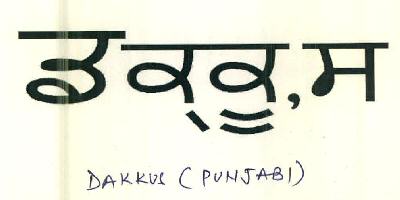 ਡਕ੍ਕੂ,ਸ
DAKKUS (PUNJABI)